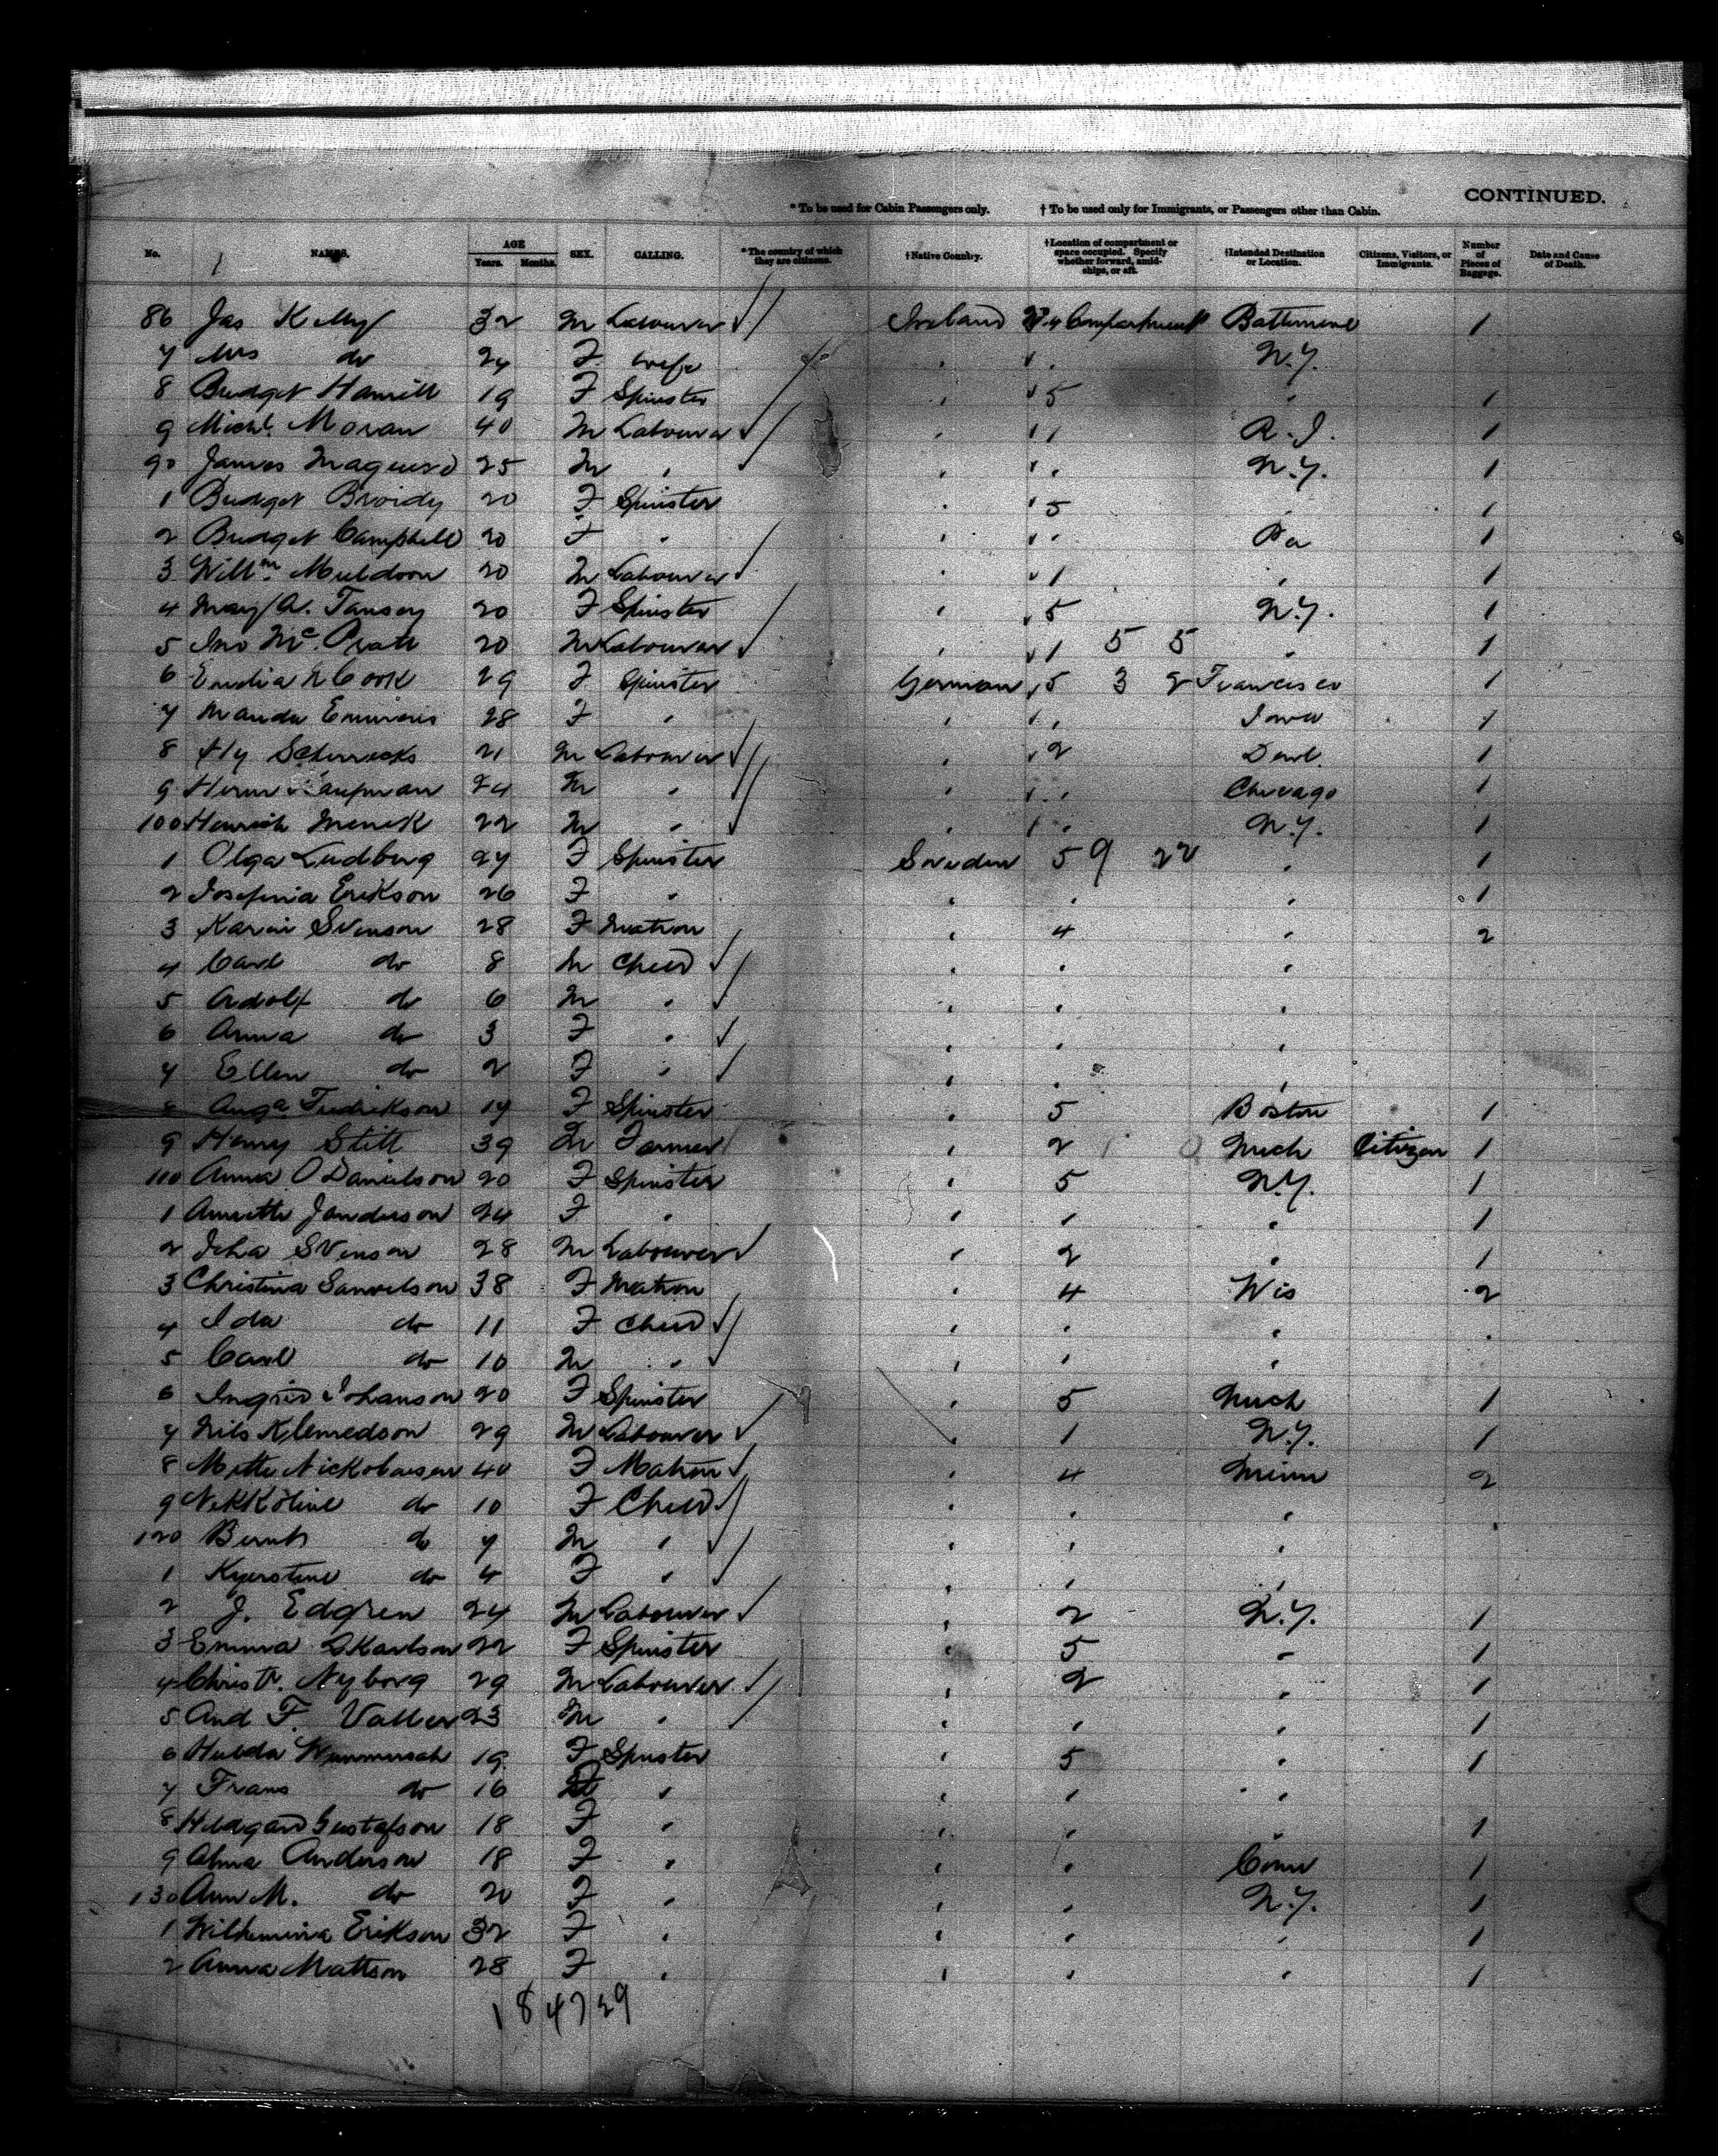 CONTINUED.
* To be used for Cabin Passengers only. † To be used only for Immigrants, or Passengers other than Cabin.
No. NAMES. AGE Years. Months. SEX. CALLING. * The country of which they are citizens. † Native Country. † Location of compartment or space occupied. Specify whether forward, amidships, or aft. † Intended Destination or Location. Citizens, Visitors, or Immigrants. Number of Pieces of Baggage. Date and Cause of Death.
86 Jas Kelly 32 M Labourer Ireland Compartment Baltimore 1
7 Mrs do 24 F wife " " N.Y.
8 Bridget Hamill 19 F Spinster " 5 " 1
9 Michl. Moran 40 M Labourer " 1 R.I. 1
90 James Maguire 25 M " " " N.Y. 1
1 Bridget Broidy 20 F Spinster " 5 " 1
2 Bridget Campbell 20 F " " " Pa 1
3 Willm Muldoon 20 M Labourer " 1 " 1
4 Mary A. Tansey 20 F Spinster " 5 N.Y. 1
5 Jno Mc. 20 M Labourer " 1 5 5 " 1
6 Cook 29 F Spinster German 5 3 2 Francisco 1
7 28 F " " " Iowa 1
8 Hy 21 M Labourer " 2 1
9 Herm Kaufman 24 M " " " Chicago 1
100 Heinrich 22 M " " " N.Y. 1
1 Olga Ludberg 27 F Spinster Sweden 5 9 22 " 1
2 Josefina Erikson 26 F " " " " 1
3 Karin Svenson 28 F Matron " 4 " 2
4 Carl do 8 M Child " " "
5 Adolf do 6 M " " " "
6 Anna do 3 F " " " "
7 Ellen do 2 F " " " "
8 Fredrikson 17 F Spinster " 5 Boston 1
9 Henry Stitt 39 M Farmer " 2 Mich Citizen 1
110 Anna O Danielson 20 F Spinster " 5 N.Y. 1
1 Annette Janderson 24 F " " " " 1
2 Svenson 28 M Labourer " 2 " 1
3 Christina Samuelson 38 F Matron " 4 Wis 2
4 Ida do 11 F Child " " "
5 Carl do 10 M " " " "
6 Ingrid Johanson 20 F Spinster " 5 Mich 1
7 Nils Klemedson 29 M Labourer " 1 N.Y. 1
8 Mette Nickolaisen 40 F Matron " 4 Minn 2
9 Nikkoline do 10 F Child " " "
120 Bernt do 7 M " " " "
1 Kyerstine do 4 F " " " "
2 J. Edgren 24 M Labourer " 2 N.Y. 1
3 Emma C Karlson 22 F Spinster " 5 " 1
4 Christn. Nyborg 29 M Labourer " 2 " 1
5 And F. Valler 23 M " " " " 1
6 Hulda 19 F Spinster " 5 " 1
7 Frans do 16 " " " "
8 Hildgard Gustafson 18 F " " " " 1
9 Alma Anderson 18 F " " " Conn 1
130 Ann M. do 20 F " " " N.Y. 1
1 Wilhemina Erikson 32 F " " " " 1
2 Anna Mattson 28 F " " " " 1
184729